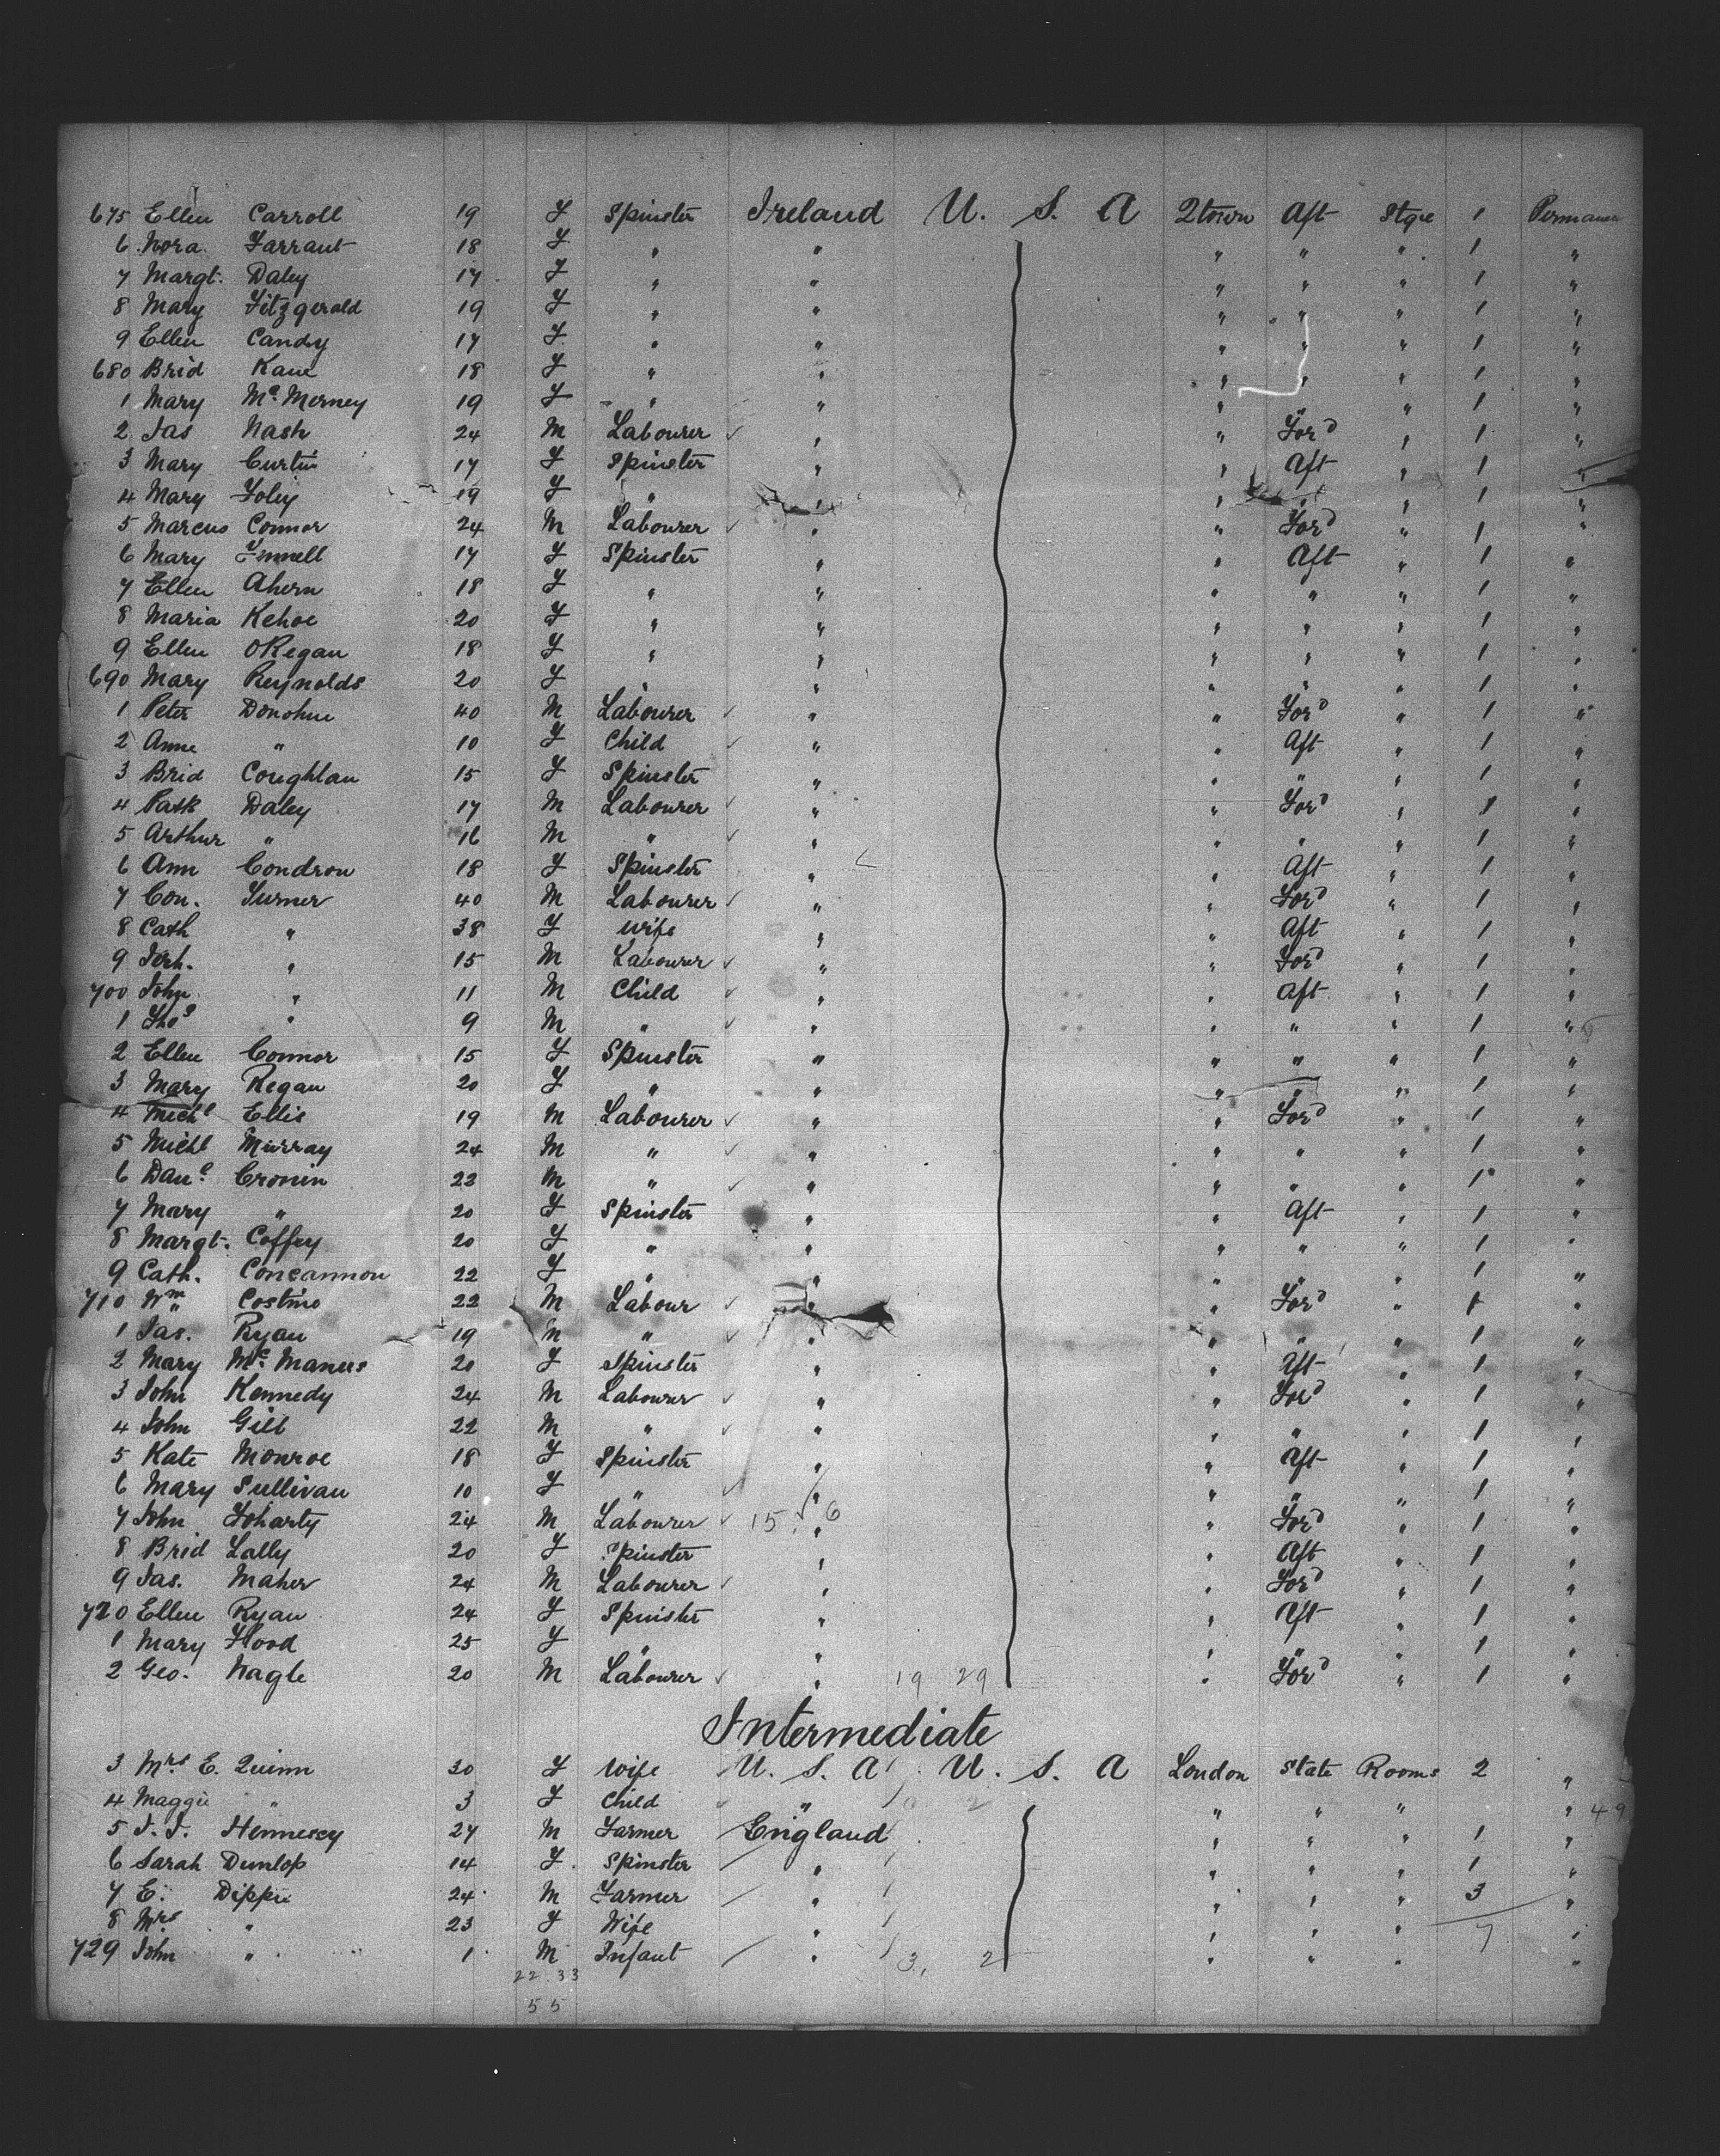 675 Ellen Carroll 19 F Spinster Ireland U. S. A Qtown Aft Stge 1 Permanen
6 Nora Farrant 18 F " " " " " 1 "
7 Margt. Daley 17 F " " " " " 1 "
8 Mary Fitzgerald 19 F " " " " " 1 "
9 Ellen Candy 17 F " " " " " 1 "
680 Brid Kane 18 F " " " " " 1 "
1 Mary Mc Merney 19 F " " " " " 1 "
2 Jas Nash 24 M Labourer " " Ford " 1 "
3 Mary Curtin 17 F Spinster " " Aft " 1 "
4 Mary Foley 19 F " " " " " 1 "
5 Marcus Connor 24 M Labourer " " Ford " 1 "
6 Mary 17 F Spinster " " Aft " 1 "
7 Ellen Ahern 18 F " " " " " 1 "
8 Maria Kehoe 20 F " " " " " 1 "
9 Ellen ORegan 18 F " " " " " 1 "
690 Mary Reynolds 20 F " " " " " 1 "
1 Peter Donohue 40 M Labourer " " Ford " 1 "
2 Anne " 10 F Child " " Aft " 1 "
3 Brid Coughlan 15 F Spinster " " " " 1 "
4 Patk Daley 17 M Labourer " " Ford " 1 "
5 Arthur " 16 M " " " " " 1 "
6 Ann Condron 18 F Spinster " " Aft " 1 "
7 Con. Turner 40 M Labourer " " Ford " 1 "
8 Cath " 38 F Wife " " Aft " 1 "
9 Jerh. " 15 M Labourer " " Ford " 1 "
700 John " 11 M Child " " Aft " 1 "
1 Thos " 9 M " " " " " 1 "
2 Ellen Connor 15 F Spinster " " " " 1 "
3 Mary Regan 20 F " " " " " 1 "
4 Michl Ellis 19 M Labourer " " Ford " 1 "
5 Michl Murray 24 M " " " " " 1 "
6 Danl Cronin 22 M " " " " " 1 "
7 Mary " 20 F Spinster " " Aft " 1 "
8 Margt. Coffey 20 F " " " " " 1 "
9 Cath. Concannon 22 F " " " " " 1 "
710 Wm Costino 22 M Labour " " Ford " 1 "
1 Jas. Ryan 19 M " " " " " 1 "
2 Mary Mc Manus 20 F Spinster " " Aft " 1 "
3 John Kennedy 24 M Labourer " " Ford " 1 "
4 John Gill 22 M " " " " " 1 "
5 Kate Monroe 18 F Spinster " " Aft " 1 "
6 Mary Sullivan 10 F " " " " " 1 "
7 John Foharty 24 M Labourer 15 6 " " Ford " 1 "
8 Brid Lally 20 F Spinster " " Aft " 1 "
9 Jas. Maher 24 M Labourer " " Ford " 1 "
720 Ellen Ryan 24 F Spinster " " Aft " 1 "
1 Mary Flood 25 F " " " " " 1 "
2 Geo. Nagle 20 M Labourer " 19 29 " Ford " 1 "
Intermediate
3 Mrs E. Quinn 30 F Wife U. S. A U. S. A London State Rooms 2 "
4 Maggie " 3 F Child " " " " " 49
5 J. J. Hennessy 27 M Farmer England " " " 1 "
6 Sarah Dunlop 14 F Spinster " " " " 1 "
7 E. Dippie 24 M Farmer " " " " 3 "
8 Mrs " 23 F Wife " " " " 7 "
729 John " 1 M Infant " 3, 2 " " " "
22 33
55